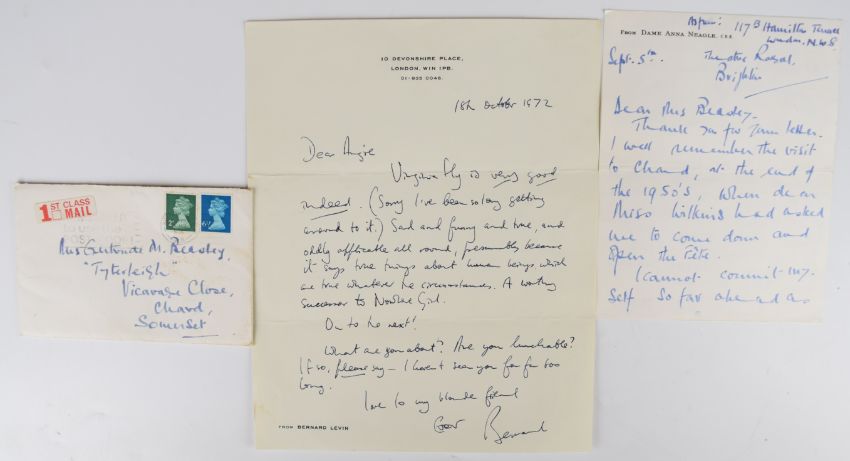 1ST CLASS
MAIL
Miss Gertrude M. Beasley,
"Tyterleigh"
Vicarage Close,
Chard,
Somerset
10 DEVONSHIRE PLACE,
LONDON, W1N 1PB.
01-935 0046.
18th October 1972
Dear Angie
Virginia Fly is very good
indeed. (Sorry I've been so long getting
around to it.) Sad and funny and true, and
oddly applicable all round, presumably because
it says true things about human beings which
are true whatever the circumstances. A worthy
successor to Nowhere Girl.
On to the next!
What are you about? Are you lunchable?
If so, please say – I haven't seen you for far too
long.
Love to my blonde friend
Ever
Bernard
FROM BERNARD LEVIN
117B Hamilton Terrace
London. N.W.8.
FROM DAME ANNA NEAGLE, CBE
Sept. 5th.
Theatre Royal,
Brighton
Dear Miss Beasley.
Thank you for your letter.
I well remember the visit
to Chard, at the end of
the 1950's, when dear
Miss Wilkins had asked
me to come down and
open the Fête.
I cannot commit my-
self so far ahead as